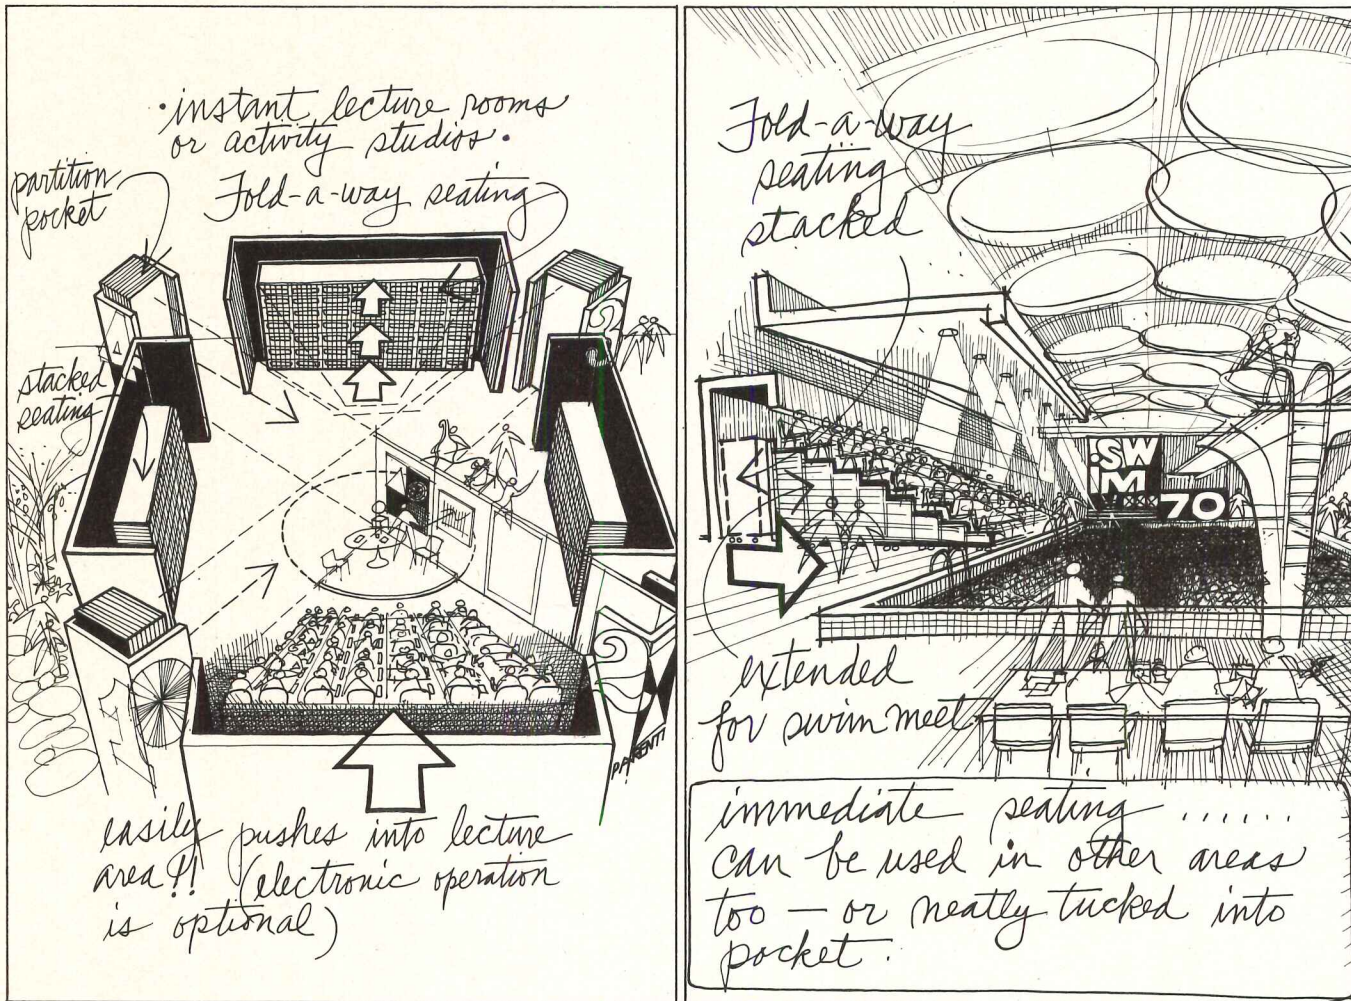 • instant lecture rooms
or activity studios •
partition
pocket
Fold-a-way seating
stacked
seating
PARENTI
easily pushes into lecture
area!! (electronic operation
is optional)
Fold-a-way
seating
stacked
SW
M
70
extended
for swim meet
immediate seating ......
can be used in other areas
too — or neatly tucked into
pocket.